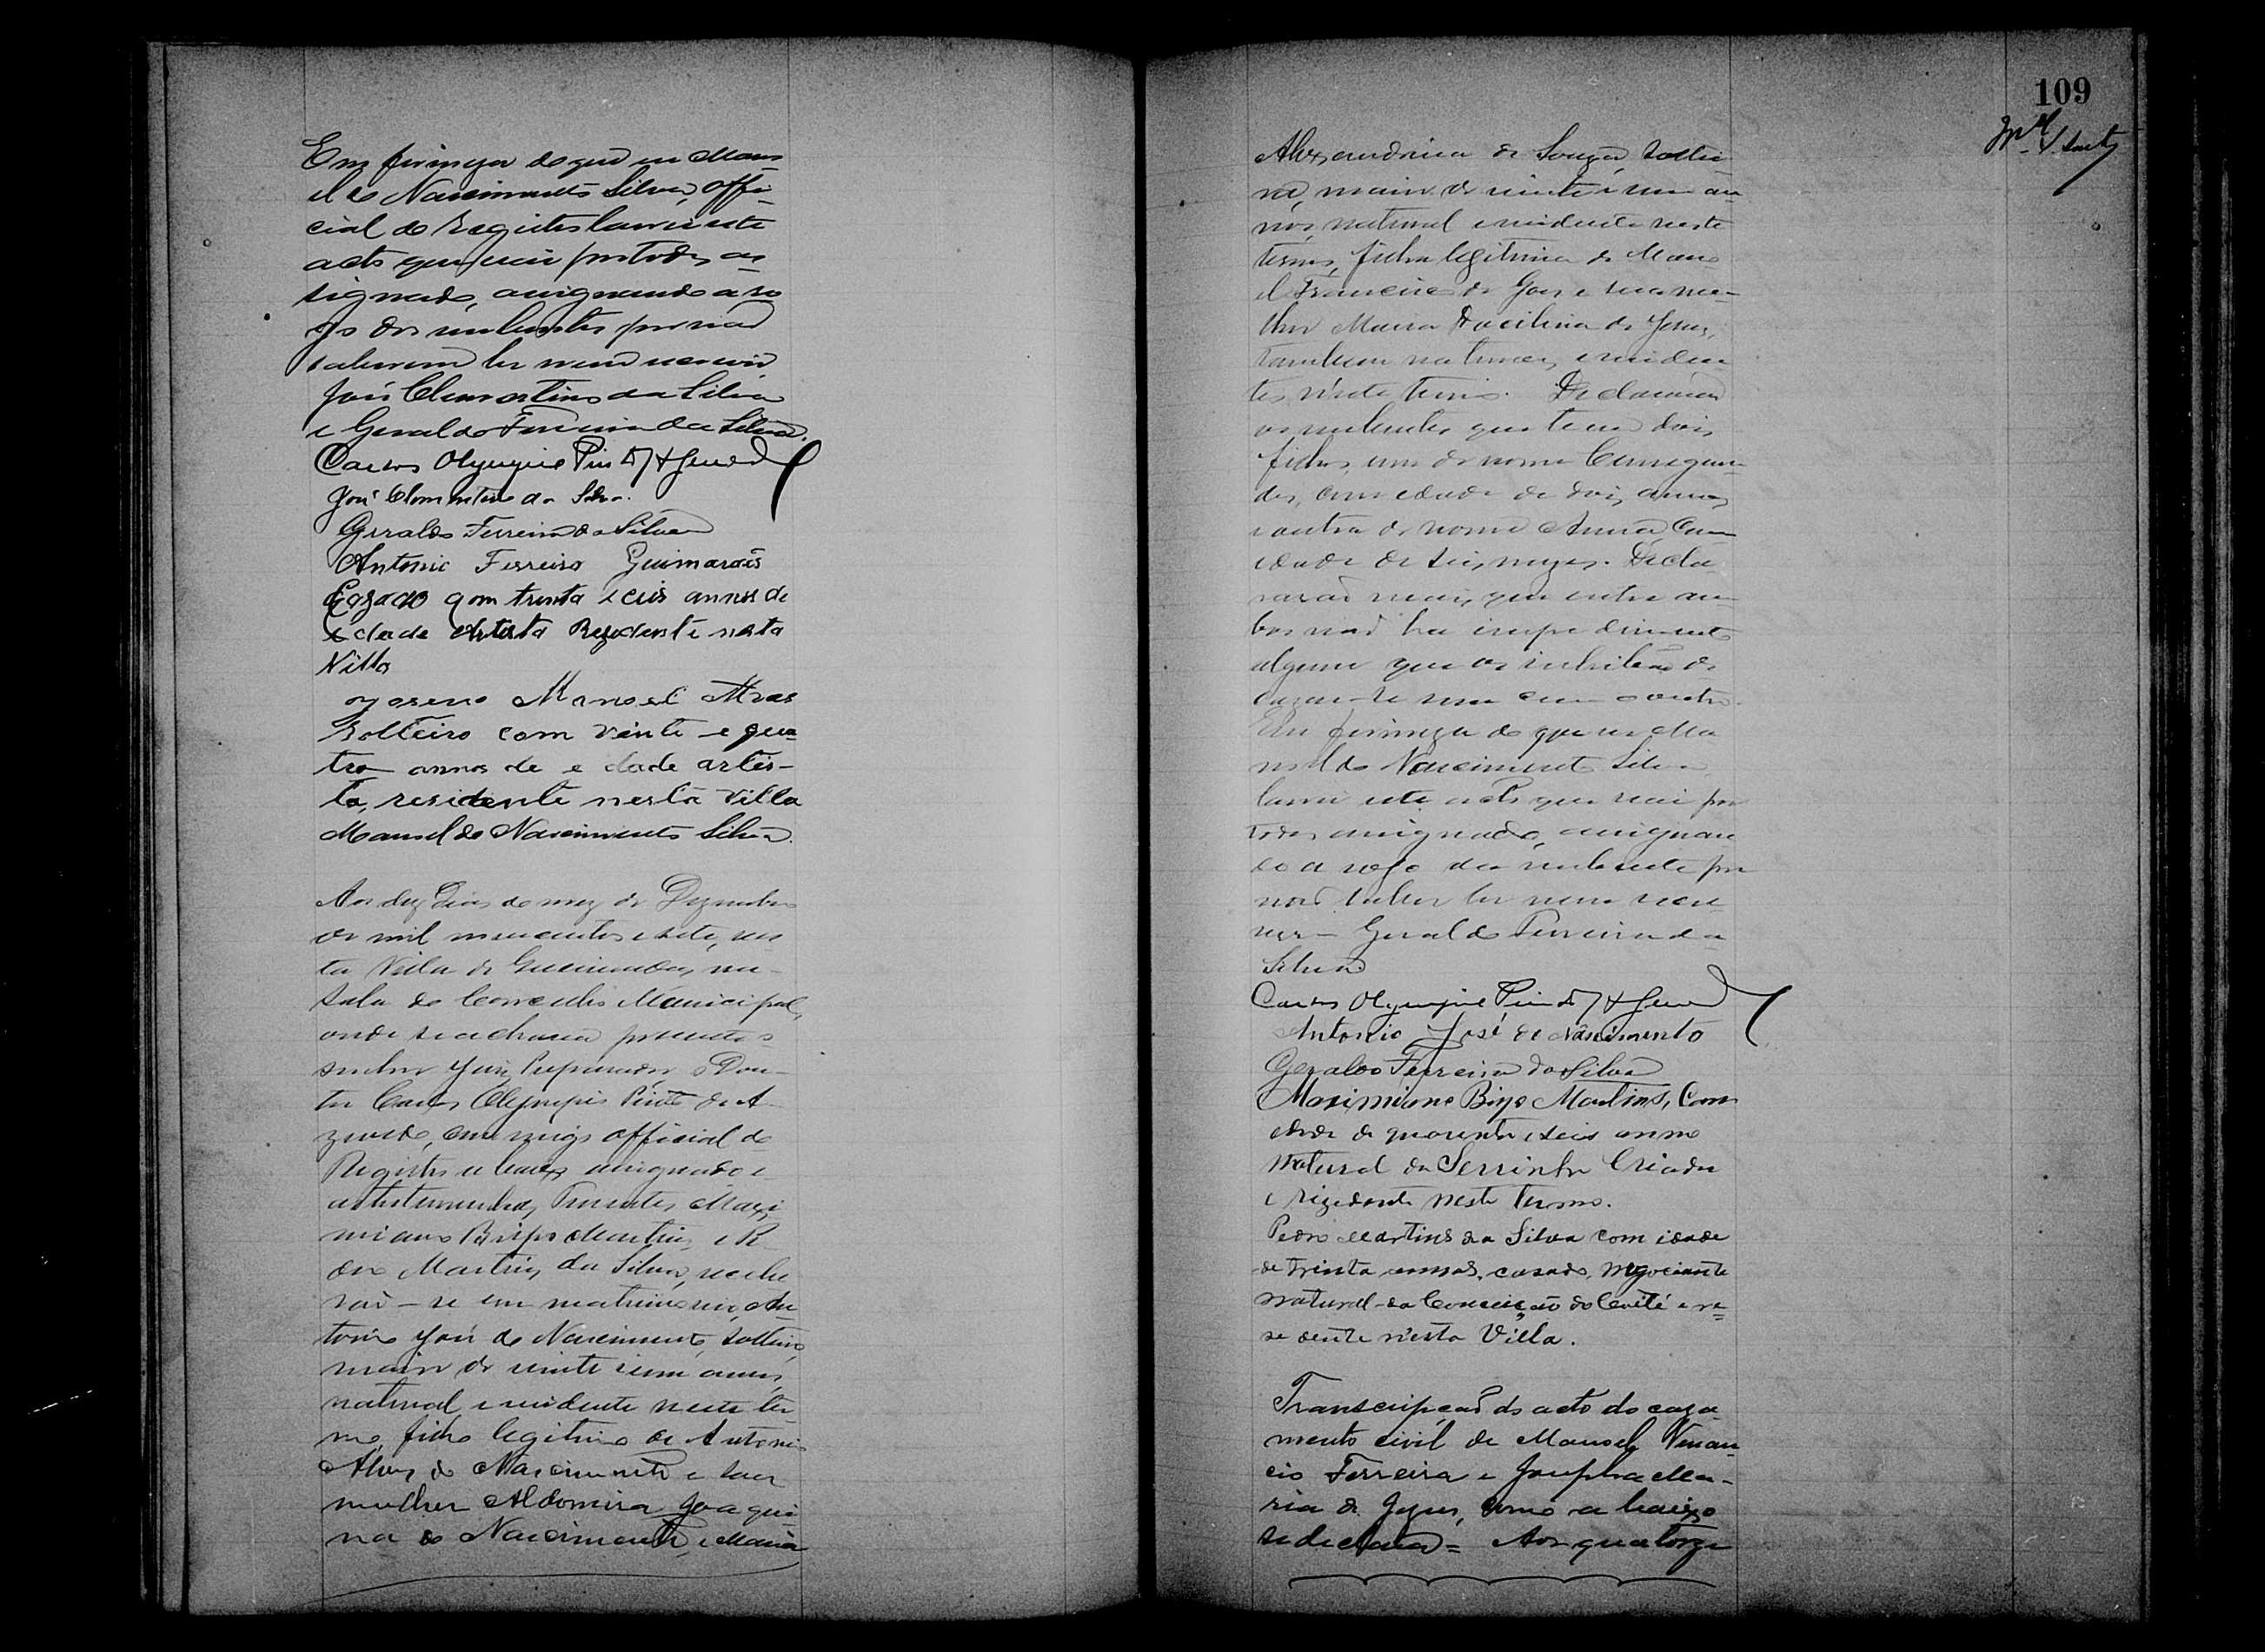 Em firmeza do que eu Mano-
el do Nascimento Silva, offi-
cial do Registo lavrei este
acto que vai por todos as-
signado, assignando a ro-
go dos nubentes por não
saberem ler nem escrever
José Clementino da Silva
e Geraldo Ferreira da Silva.
Carlos Olympio Pinto d'Azevedo
José Clementino da Silva.
Geraldo Ferreira da Silva
Antonio Ferreira Guimarães
Cazado com trinta e ceis annos de
edade Artista Rezedente nesta
Villa
Manoel Alves
Solteiro com vinte e qua-
tro annos de edade artis-
ta, residente nesta Villa
Manoel do Nascimento Silva.
Aos dez dias do mez de Dezembro
de mil novecentos e sete, nes-
ta Villa de Queimadas, na
sala do Conselho Municipal,
onde se achava presente o
senhor Juiz Preparador, o Dou-
tor Carlos Olympio Pinto de A-
zevedo, commigo official do
Registo abaixo assignado e
as testemunhas, Presentes, Maxi-
miano Bispo Martins e Pe-
dro Martins da Silva, recebe-
rão-se em matrimonio, An-
tonio José do Nascimento, solteiro,
maior de vinte e um annos,
natural e residente neste ter-
mo, filho legitimo de Antonio
Alves do Nascimento e sua
mulher Aldomira Joaqui-
na do Nascimento, e Maria
109
Alexandrina de Souza, soltei-
ra, maior de vinte e um an-
nos, natural e residente neste
termo, filha legitima de Mano-
el Francisco de Goes e sua mu-
lher Maria Docilina de Jesus,
tambem naturaes e residen-
tes n'este termo. Declararam
os nubentes que tem dois
filhos, um de nome
com edade de dois annos,
e outra de nome Anna, com
edade de seis mezes. Decla-
raram mais, que entre am-
bos não ha impedimento
algum que os inhibão de
cazar-se um com o outro.
Em firmeza do que eu Ma-
noel do Nascimento Silva
lavrei este acto que vai por
todos assignado, assignan-
do a rogo da nubente por
não saber ler nem escre-
ver - Geraldo Ferreira da
Silva
Carlos Olympio Pinto d'Azevedo
Antonio José do Nascimento
Geraldo Ferreira da Silva
Maximiano Bispo Martins, Com
edade de quarenta e seis annos
Natural da Serrinha Criador
e rizedente neste termo.
Pedro Martins da Silva com idade
de trinta annos, casado, negociante
natural da Conceição do Coité e re-
sedente n'esta Villa.
Transcripção do acto do caza-
mento civil de Manoel Venan-
cio Ferreira e Josepha Ma-
ria de Jesus, como abaixo
se declara = Aos quatorze